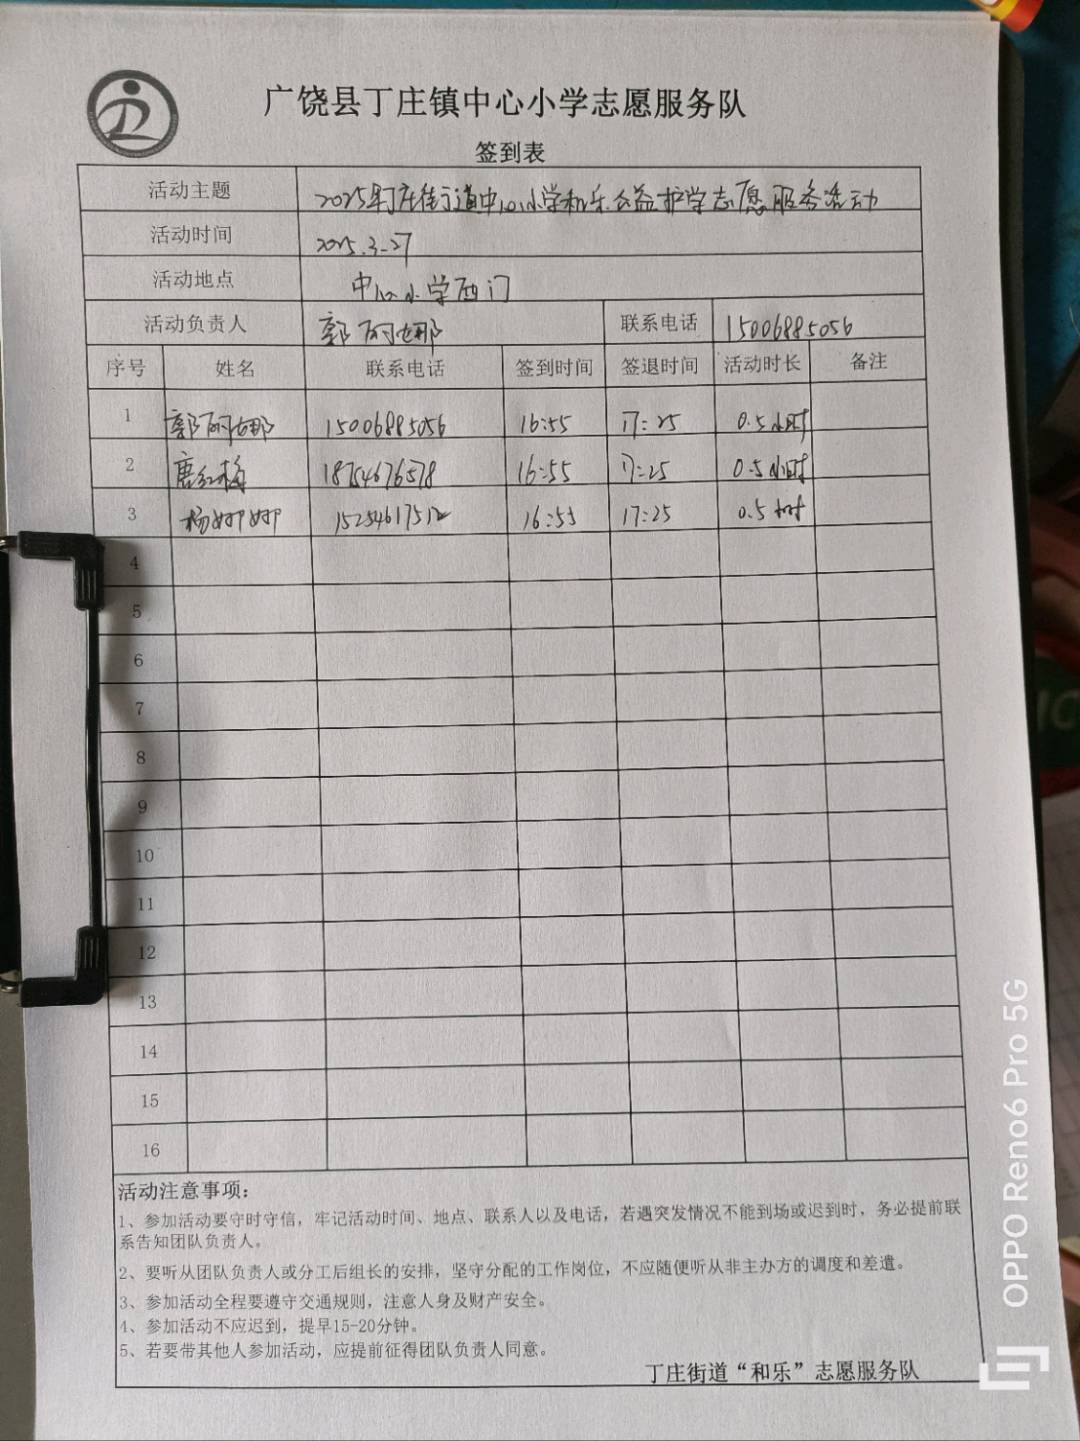 广饶县丁庄镇中心小学志愿服务队
签到表
活动主题 2025年丁庄街道中心小学和乐公益护学志愿服务活动
活动时间 2025.3-27
活动地点 中心小学西门
活动负责人 郭阿娜 联系电话 15006885056
序号 姓名 联系电话 签到时间 签退时间 活动时长 备注
1 郭阿娜 15006885056 16:55 17:25 0.5小时
2 唐红梅 18754676578 16:55 17:25 0.5小时
3 杨婷婷 15254617512 16:55 17:25 0.5小时
4
5
6
7
8
9
10
11
12
13
14
15
16
活动注意事项：
1、参加活动要守时守信，牢记活动时间、地点、联系人以及电话，若遇突发情况不能到场或迟到时，务必提前联
系告知团队负责人。
2、要听从团队负责人或分工后组长的安排，坚守分配的工作岗位，不应随便听从非主办方的调度和差遣。
3、参加活动全程要遵守交通规则，注意人身及财产安全。
4、参加活动不应迟到，提早15-20分钟。
5、若要带其他人参加活动，应提前征得团队负责人同意。
丁庄街道“和乐”志愿服务队
OPPO Reno6 Pro 5G